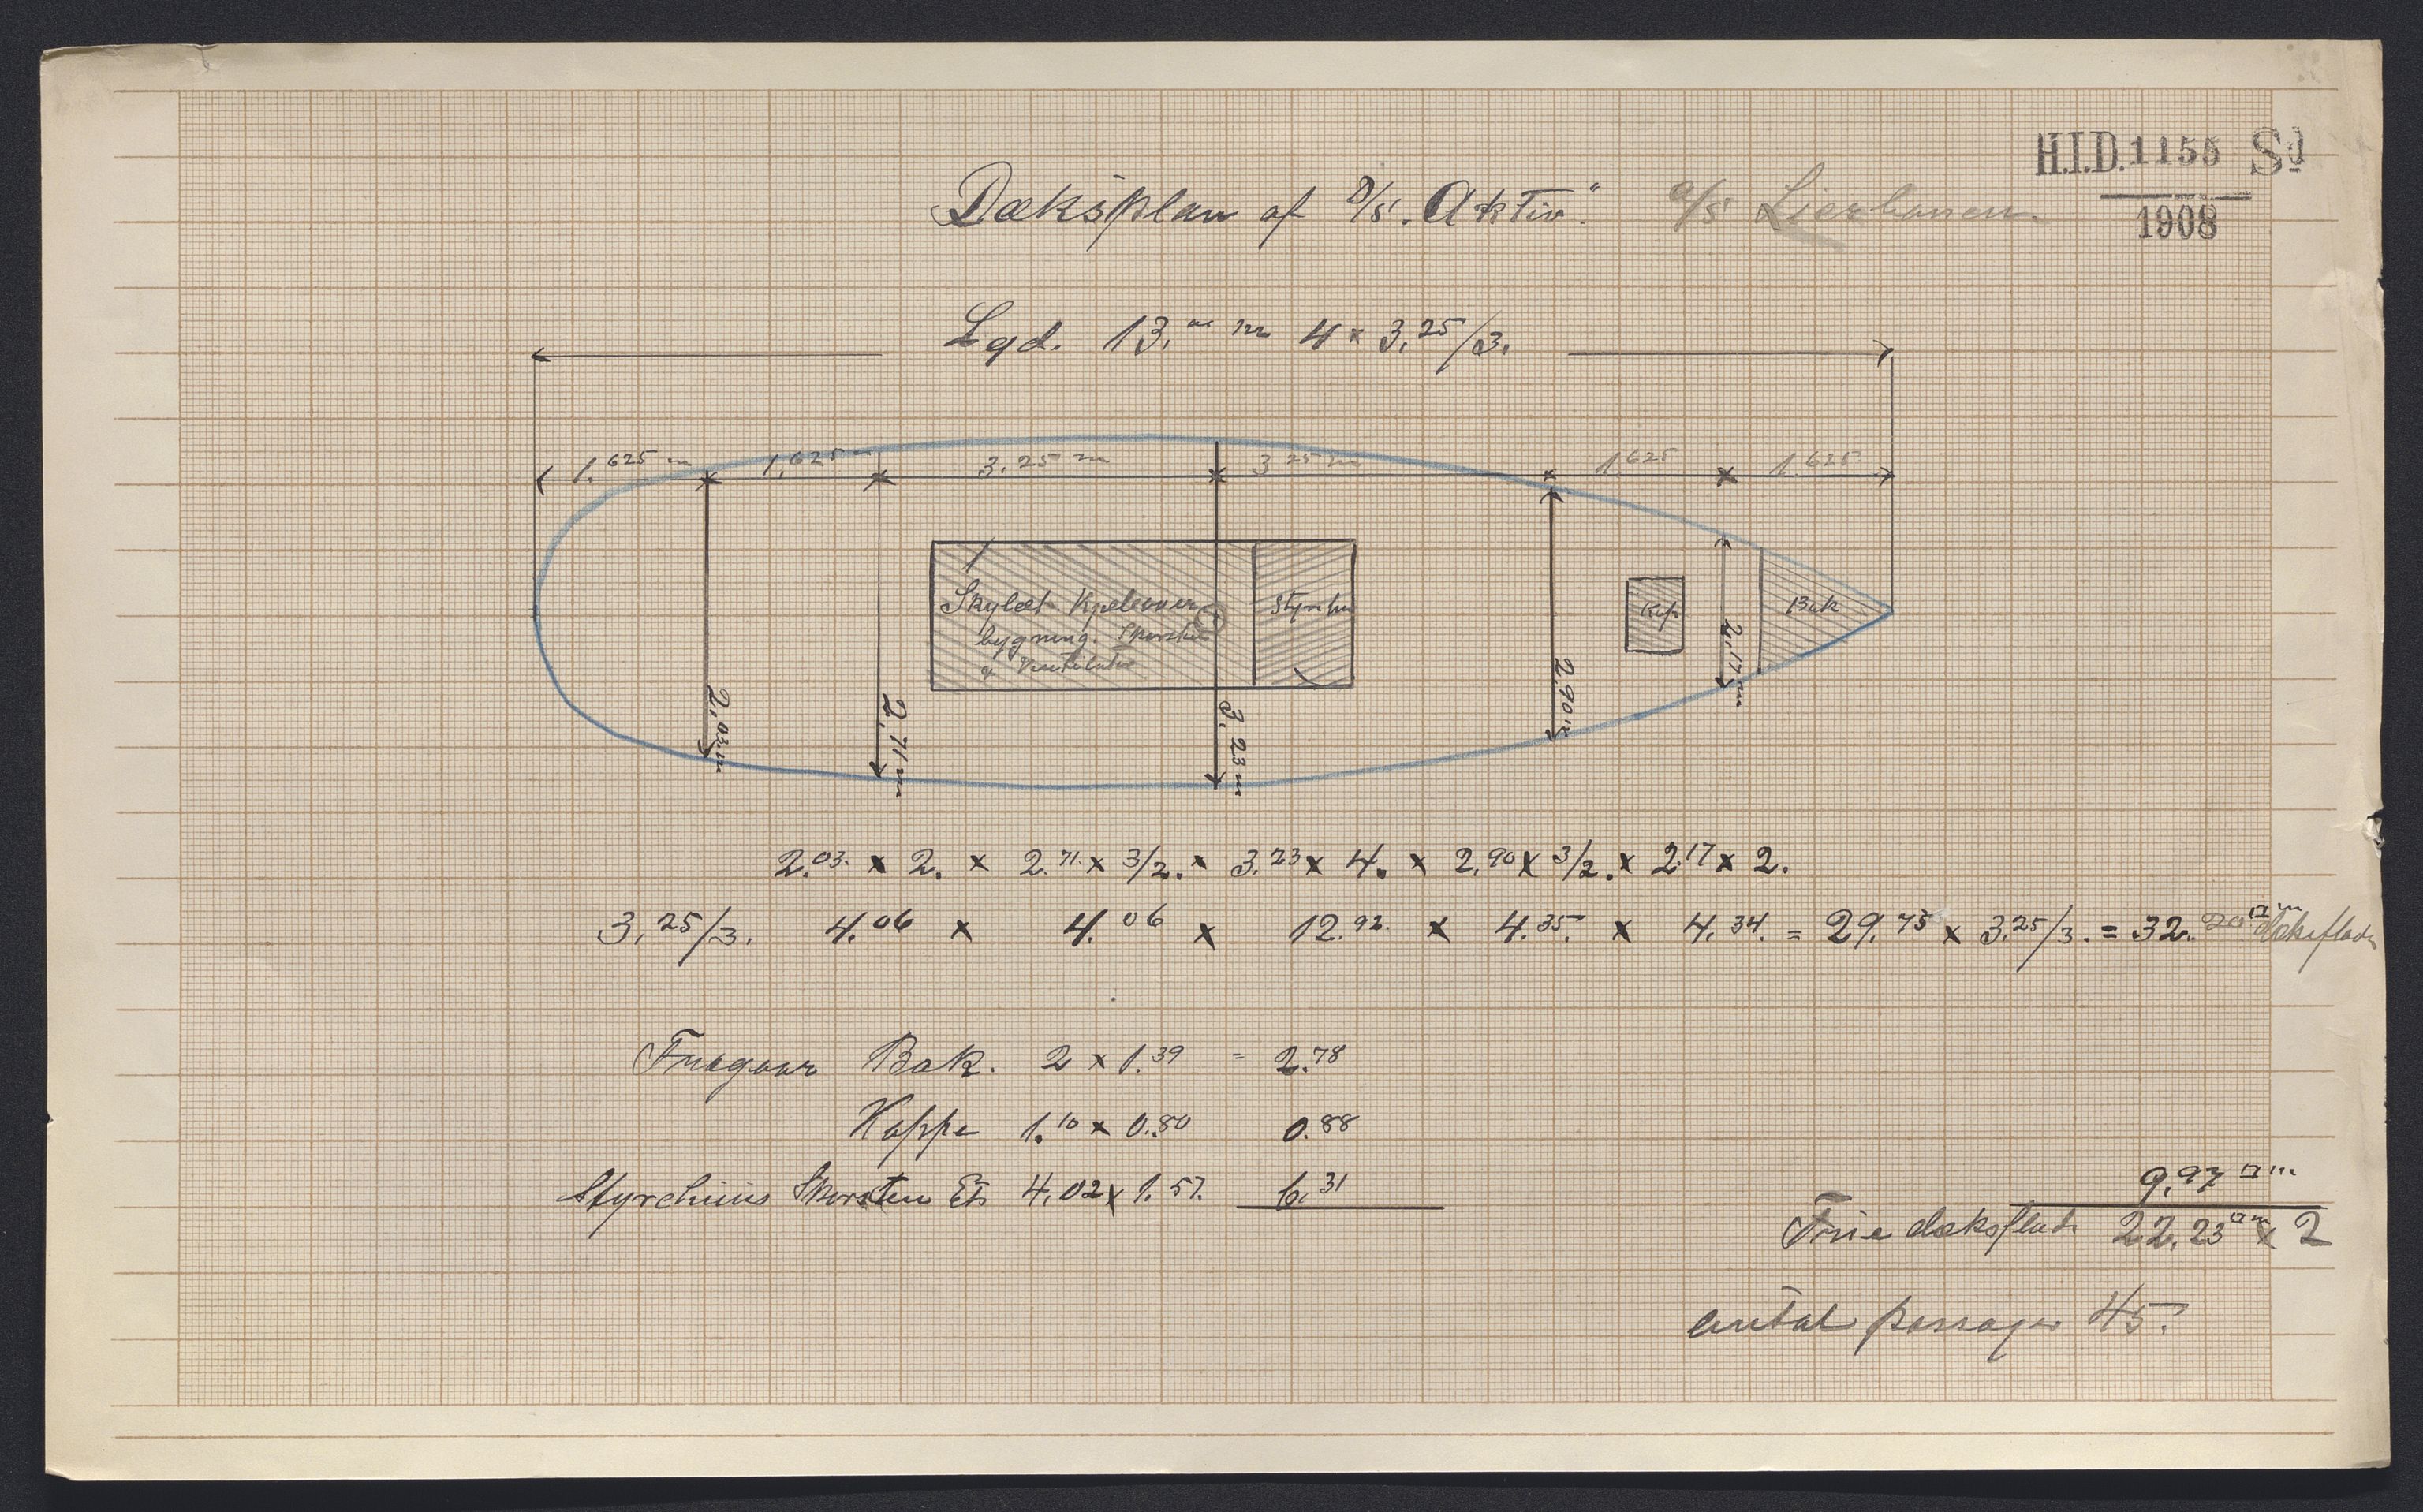 H.I.D. 1155 Sd
1908
Dæksplan af D/S. "Aktiv." a/s Lierbanen.
Lgd. 13.00 m 4 x 3.25/3.
1.625 m 1.625 m 3.25 m 3 25 m 1.625 1.625
Skylet Kjeleover
bygning. Skorsten
og Ventilator
Styrehu
Kap
Bak
2,03 m
2,71 m
3,23 m
2,90 m
2,17 m
2.03. x 2. x 2.71. x 3/2. x 3.23 x 4. x 2.90 x 3/2. x 2.17 x 2.
3,25/3. 4.06 x 4.06 x 12.92. x 4.35. x 4.34. = 29.73 x 3.25/3. = 32.20 □m dæksflade
Fragaar Bak. 2 x 1.39 = 2.78
Kappe 1.10 x 0.80 0.88
Styrehuus Skorsten Etc 4,02 x 1.57. 6.31
9,97 □m
Frie dæksflade 22,23 □m x 2
antal passager 45.